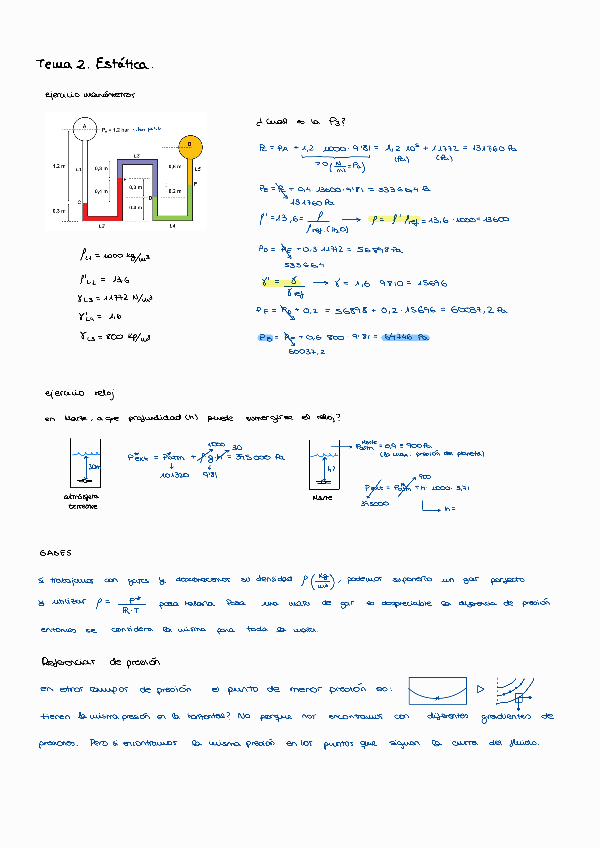 Tema 2. Estática.
ejercicio manómetros
A
PA = 1,2 bar
1,2 m
0,3 m
L1
C
L2
0,3 m
0,4 m
E
L3
0,3 m
0,4 m
D
L4
0,6 m
0,2 m
B
L5
F
ρL1 = 1000 kg/m³
ρ'L2 = 13,6
γL3 = 11772 N/m³
γ'L4 = 1,6
γL5 = 800 kp/m³
¿Cual es la PB?
Pc = PA + 1,2 · 1000 · 9'81 = 1,2 · 10⁵ + 11772 = 131760 Pa
(Pa) (Pa)
>0 (N/m² = Pa)
PE = Pc + 0,4 · 13600 · 9'81 =
131760 Pa
ρ' = 13,6 = ρ / ρref. (H₂O) → ρ = ρ' ρref = 13,6 · 1000 = 13600
PD = PE + 0,3 · 11772 = 56898 Pa
53366,4
γ' = γ / γref → γ = 1,6 · 9810 = 15696
PF = PD + 0,2 = 56898 + 0,2 · 15696 = 60037,2 Pa
PB = PF + 0,6 · 800 · 9'81 = 64746 Pa
60037,2
ejercicio reloj
en Marte, a que profundidad (h) puede sumergirse el reloj?
30m
atmósfera
terrestre
Pext = Patm + ρ · g · h = 395000 Pa
1000
30
101320
9'81
h?
Marte
Patm Marte = 0,9 = 900 Pa
(la max. presión del planeta)
Pext = Patm + h · 1000 · 3,71
900
395000
h =
GASES
si trabajamos con gases y desconocemos su densidad ρ (kg/m³), podemos suponerlo un gas perfecto
y utilizar ρ = P* / R·T para hallarla. Para una masa de gas es despreciable la diferencia de presión
entonces se considera la misma para toda la masa.
Diferencias de presión
en otros campos de presión el punto de menor presión es:
tienen la misma presión en la horizontal? No porque nos encontramos con diferentes gradientes de
presiones. Pero si encontramos la misma presión en los puntos que siguen la curva del fluido.